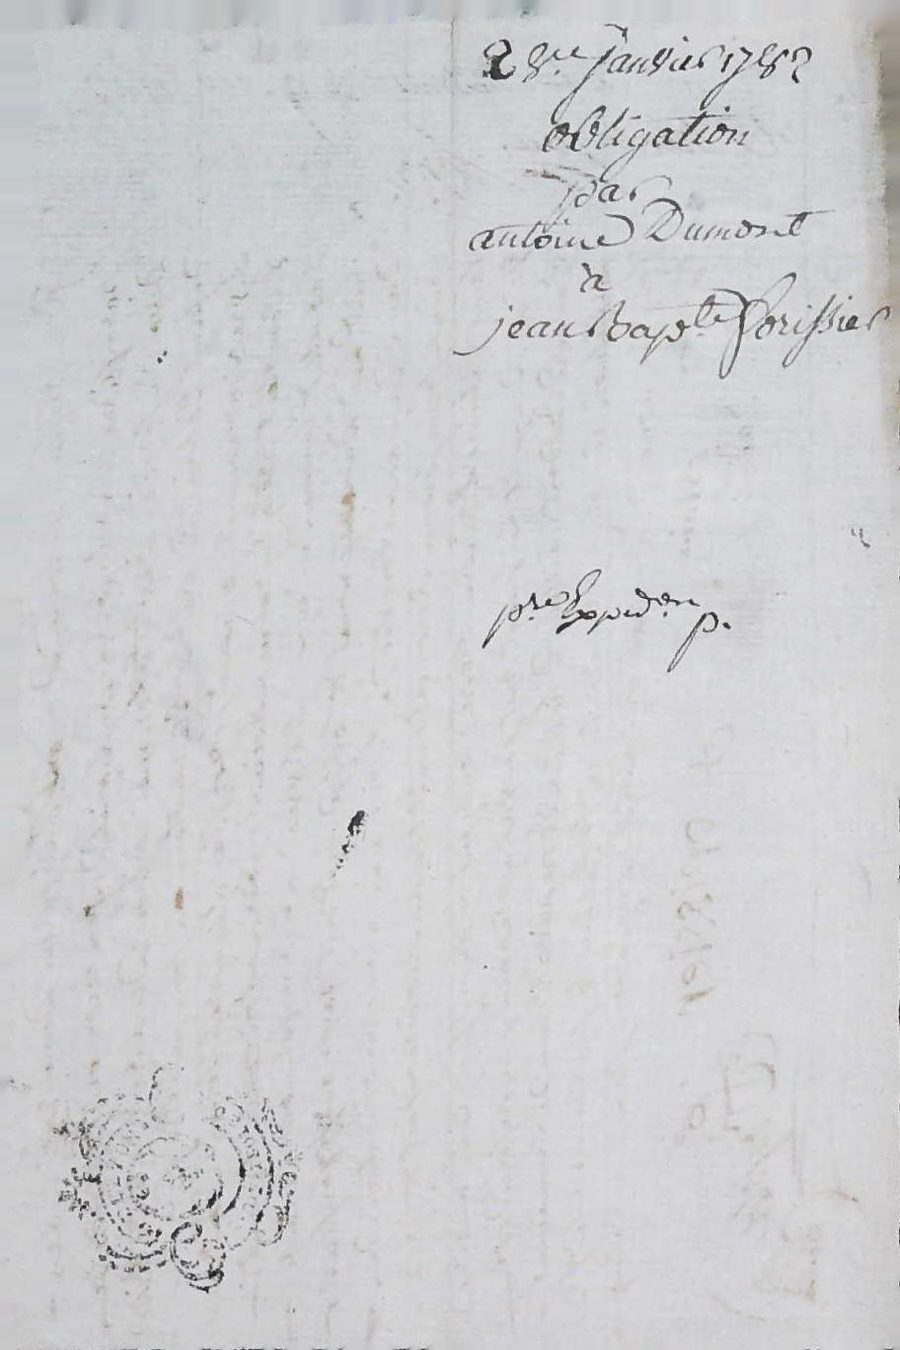 28re janvier 1782
obligation
par
antoine Dumont
à
jean Bapte forissier
pre Expeden p.